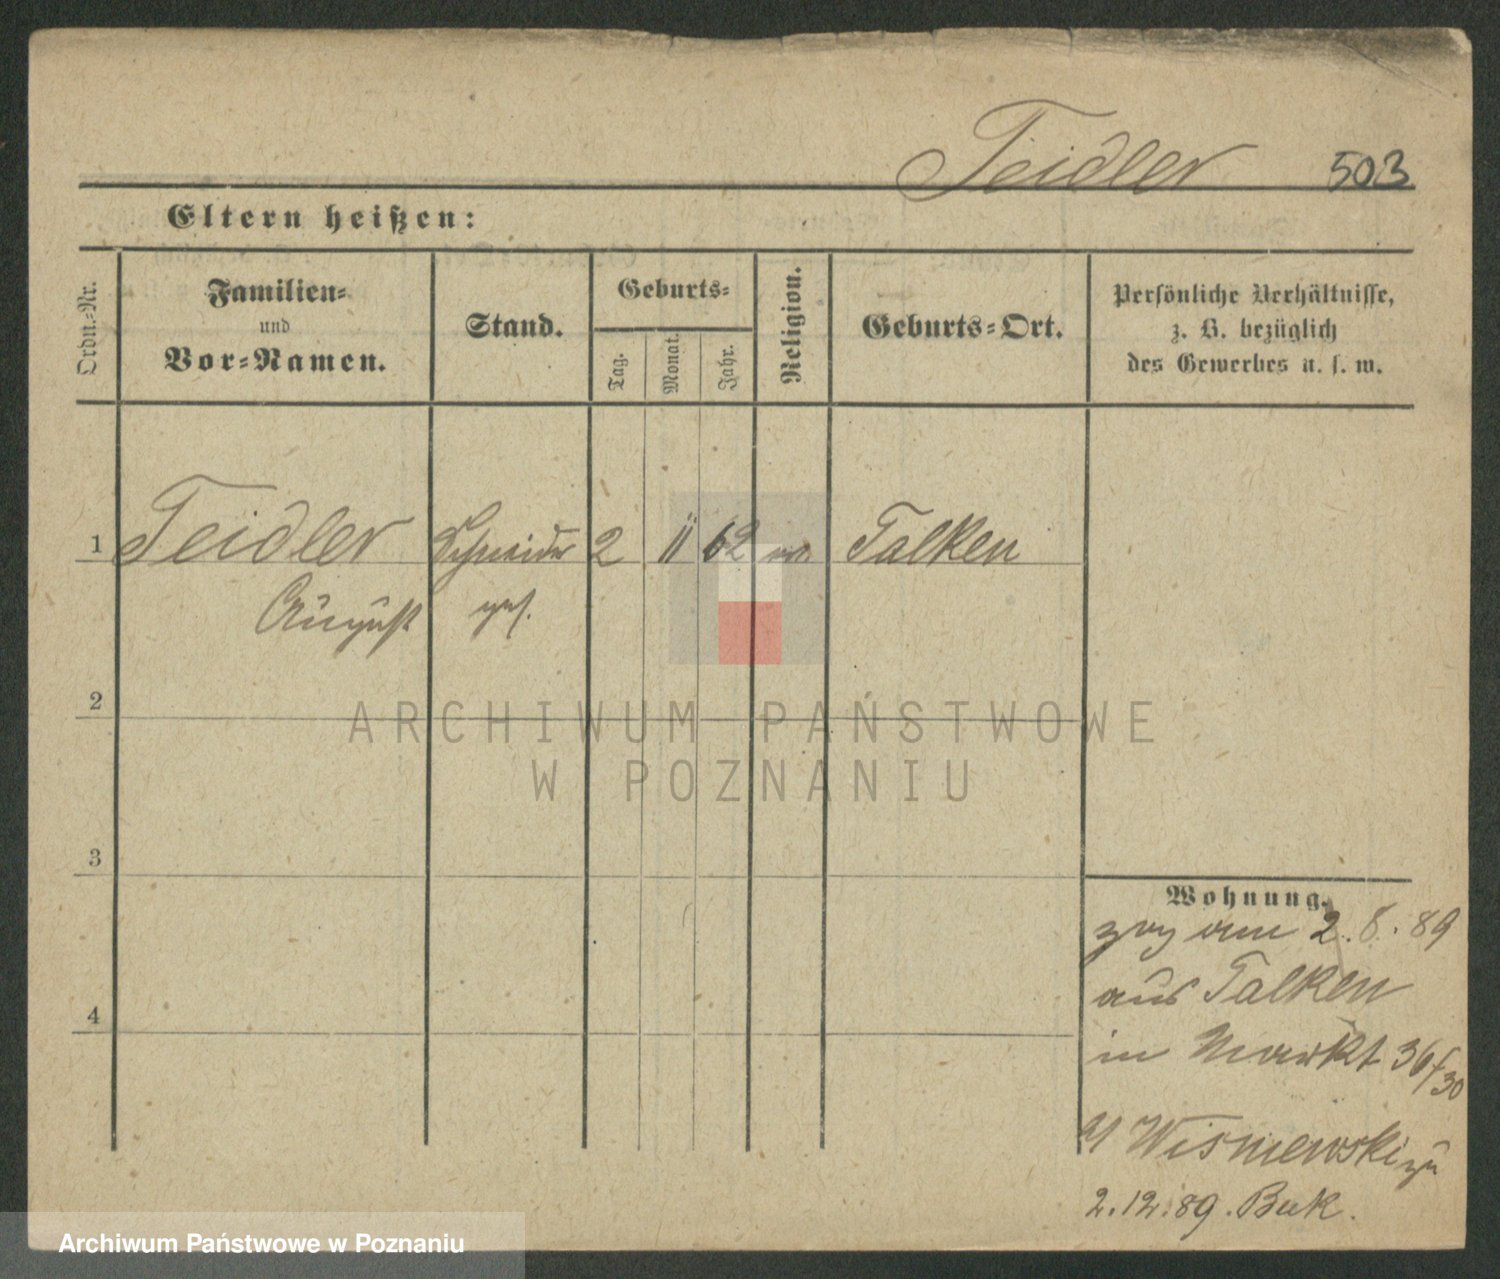 Teidler 503
Eltern heißen:
Ordn.-Nr.
Familien-
und
Vor-Namen.
Stand.
Geburts-
Tag.
Monat.
Jahr.
Religion.
Geburts-Ort.
Persönliche Verhältnisse,
z. B. bezüglich
des Gewerbes u. s. w.
1 Teidler Schneider 2 11 62 Talken
August ges.
2
ARCHIWUM PAŃSTWOWE
W POZNANIU
3
4
Wohnung.
zog am 2.8.89
aus Talken
in Markt 36/30
Wisniewski zu
2.12.89. Buk.
Archiwum Państwowe w Poznaniu